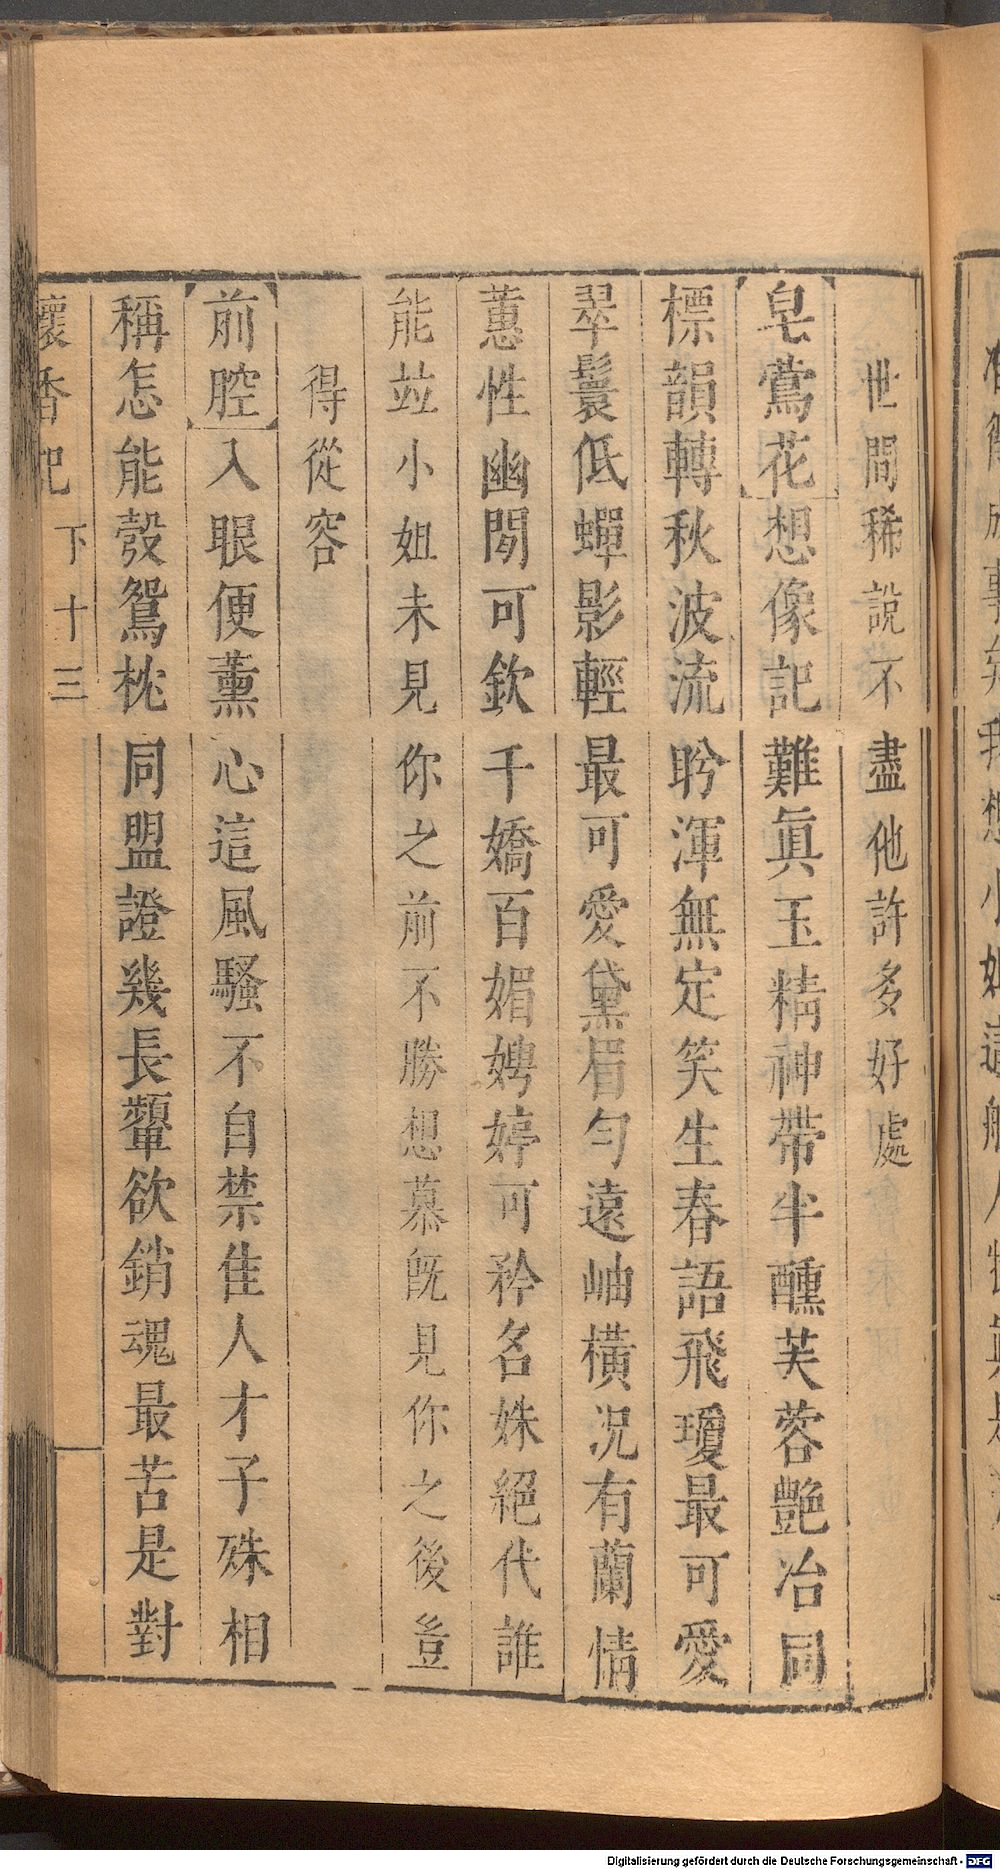 世間稀說不盡他許多好處
皂鶯花想像記難眞玉精神帶半醺芙蓉艷冶同
標韻轉秋波流盻渾無定笑生春語飛瓊最可愛
翠鬟低蟬影輕最可愛黛眉勻遠岫橫況有蘭情
蕙性幽閒可欽千嬌百媚娉婷可矜名姝絕代誰
能並小姐未見你之前不勝想慕旣見你之後豈
得從容
前腔入眼便薰心這風騷不自禁隹人才子殊相
稱怎能彀鴛枕同盟證幾長顰欲銷魂最苦是對
懷香記 下 十三
Digitalisierung gefördert durch die Deutsche Forschungsgemeinschaft - DFG